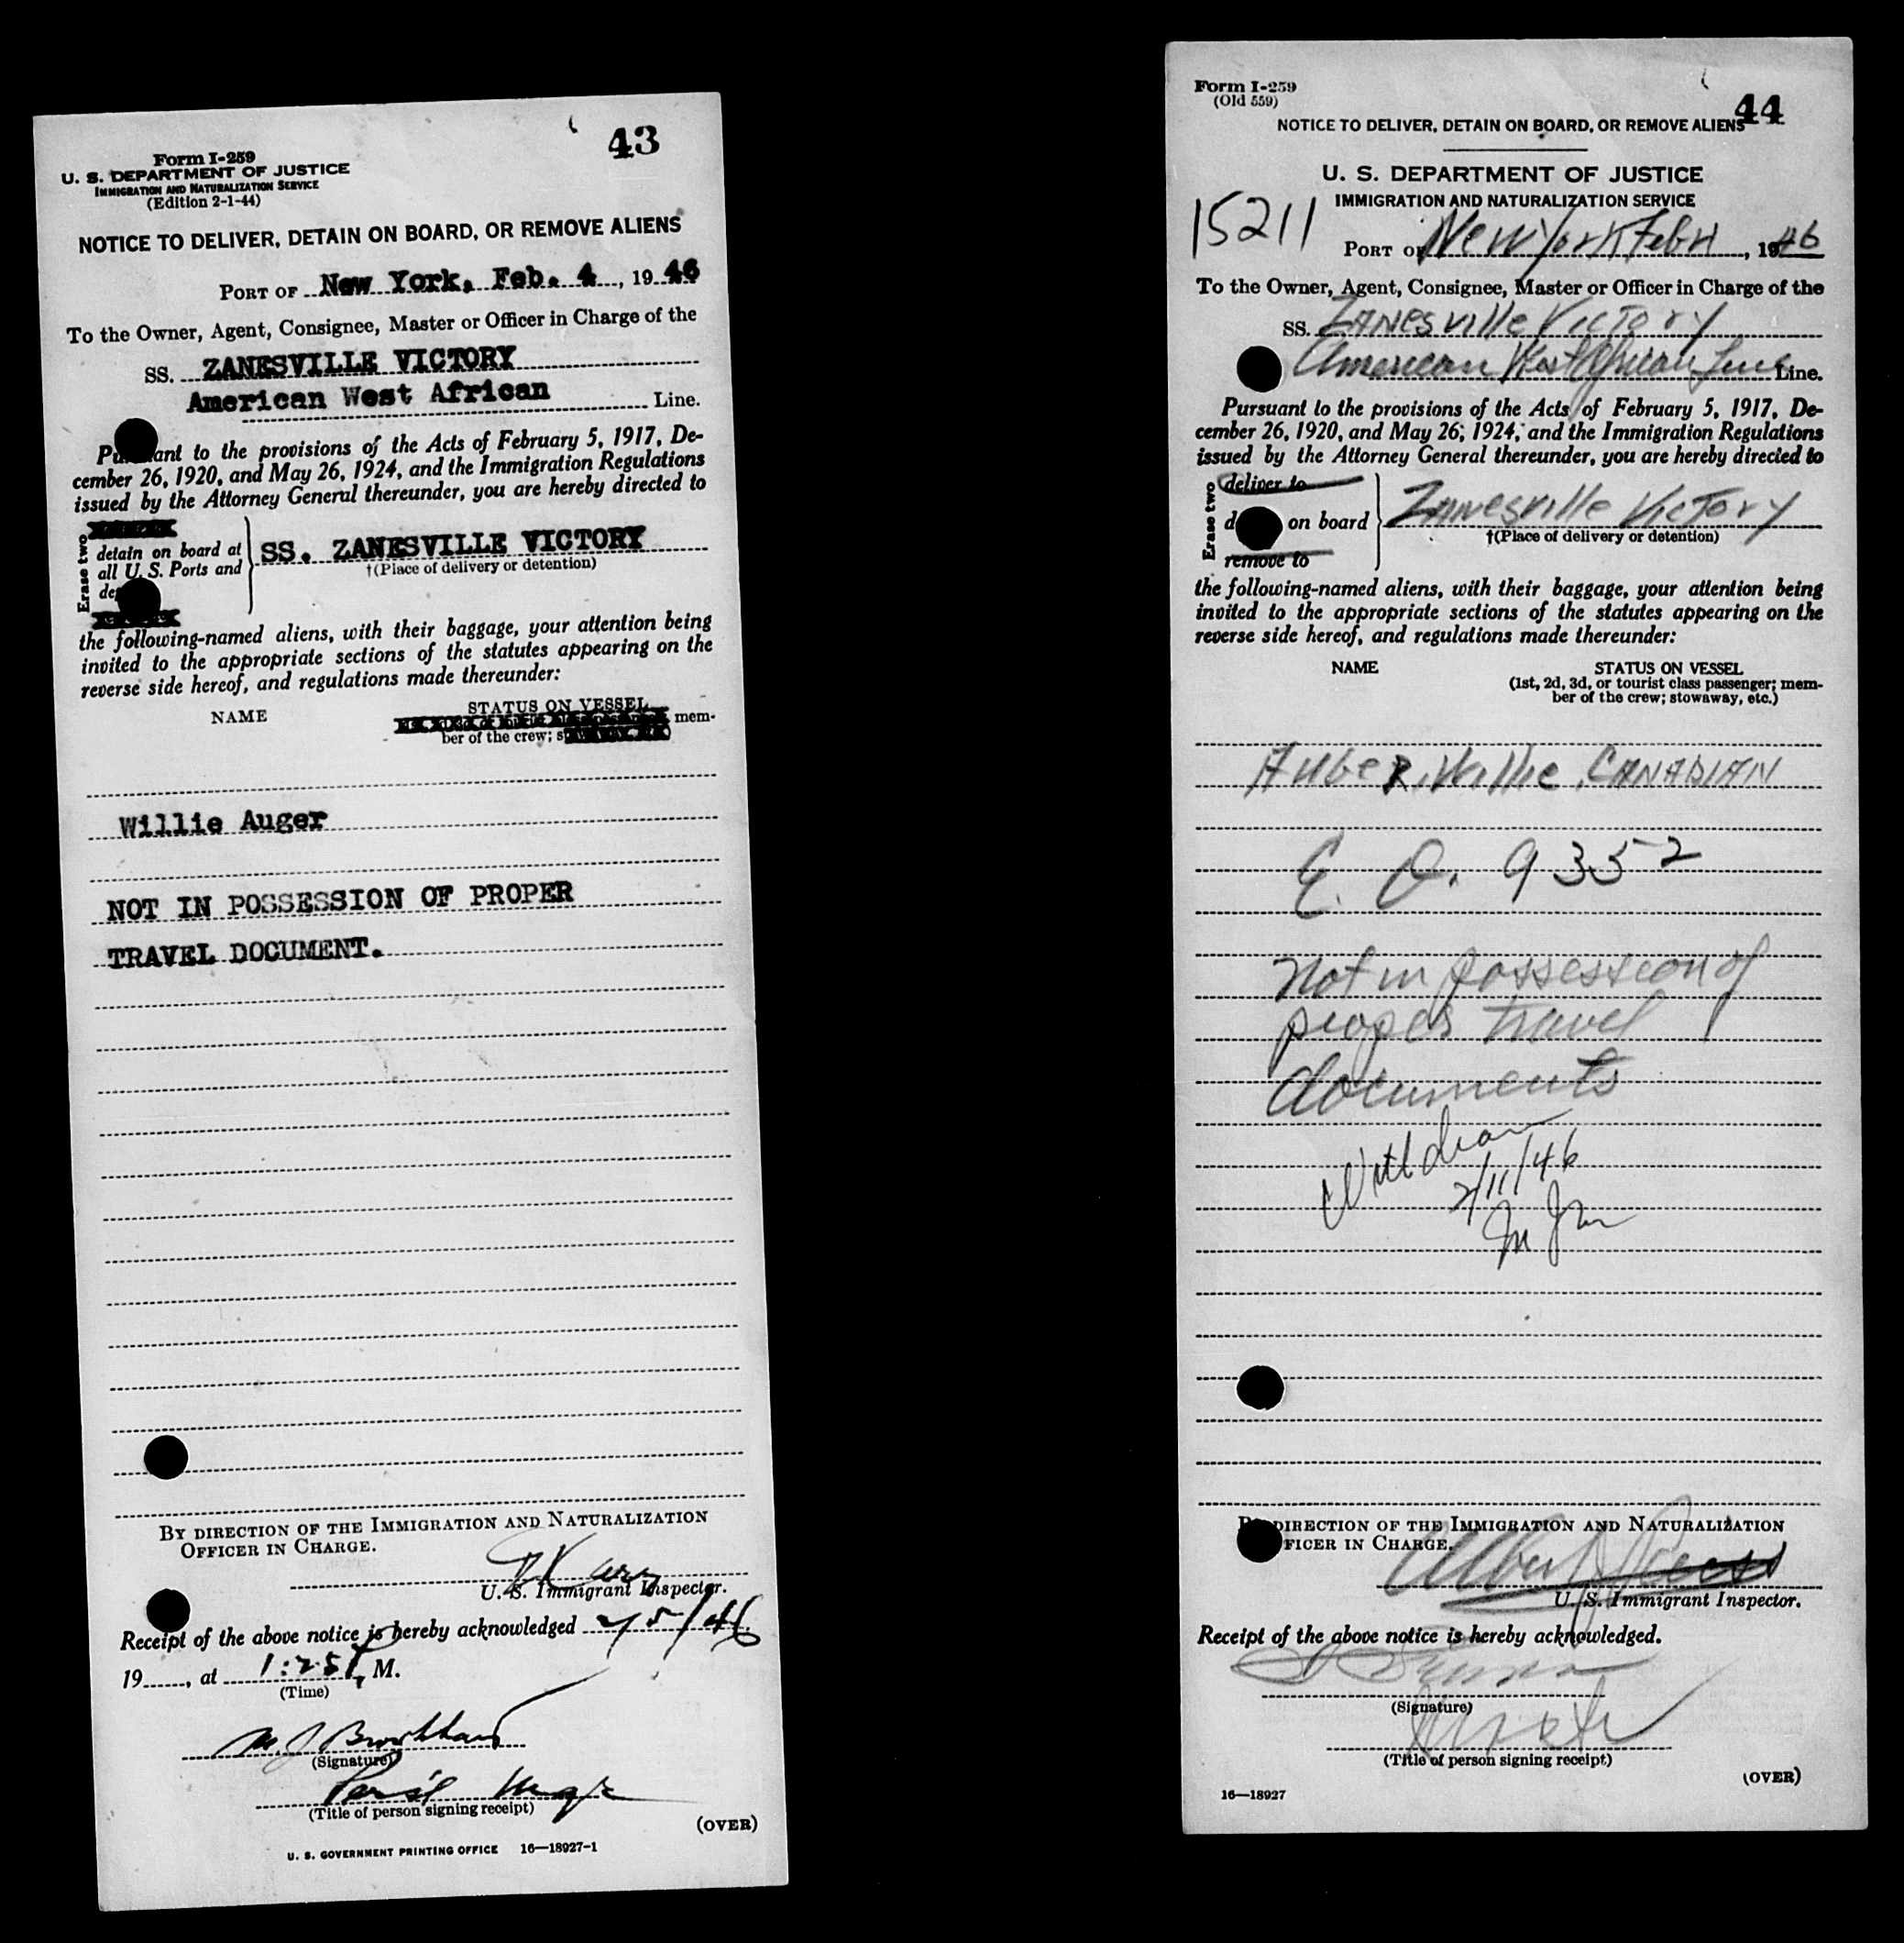 43
Form I-259
U. S. DEPARTMENT OF JUSTICE
IMMIGRATION AND NATURALIZATION SERVICE
(Edition 2-1-44)
NOTICE TO DELIVER, DETAIN ON BOARD, OR REMOVE ALIENS
PORT OF New York, Feb. 4, 1946
To the Owner, Agent, Consignee, Master or Officer in Charge of the
SS. ZANESVILLE VICTORY
American West African Line.
Pursuant to the provisions of the Acts of February 5, 1917, De-
cember 26, 1920, and May 26, 1924, and the Immigration Regulations
issued by the Attorney General thereunder, you are hereby directed to
Erase two
detain on board at
all U. S. Ports and
SS. ZANESVILLE VICTORY
†(Place of delivery or detention)
the following-named aliens, with their baggage, your attention being
invited to the appropriate sections of the statutes appearing on the
reverse side hereof, and regulations made thereunder:
NAME
STATUS ON VESSEL
mem-
ber of the crew;
Willie Auger
NOT IN POSSESSION OF PROPER
TRAVEL DOCUMENT.
BY DIRECTION OF THE IMMIGRATION AND NATURALIZATION
OFFICER IN CHARGE.
U. S. Immigrant Inspector.
Receipt of the above notice is hereby acknowledged 2/5/46
19, at 1:25 P. M.
(Time)
(Signature)
(Title of person signing receipt)
(OVER)
U. S. GOVERNMENT PRINTING OFFICE 16—18927-1
Form I-259
(Old 559)
44
NOTICE TO DELIVER, DETAIN ON BOARD, OR REMOVE ALIENS
U. S. DEPARTMENT OF JUSTICE
IMMIGRATION AND NATURALIZATION SERVICE
15211
PORT OF New York Feb 4, 1946
To the Owner, Agent, Consignee, Master or Officer in Charge of the
SS. Zanesville Victory
American West African Line Line.
Pursuant to the provisions of the Acts of February 5, 1917, De-
cember 26, 1920, and May 26, 1924, and the Immigration Regulations
issued by the Attorney General thereunder, you are hereby directed to
Erase two
deliver to
on board
remove to
Zanesville Victory
†(Place of delivery or detention)
the following-named aliens, with their baggage, your attention being
invited to the appropriate sections of the statutes appearing on the
reverse side hereof, and regulations made thereunder:
NAME
STATUS ON VESSEL
(1st, 2d, 3d, or tourist class passenger; mem-
ber of the crew; stowaway, etc.)
Auger, Willie, CANADIAN
E. O. 9352
Not in possession of
proper travel
documents
Withdrawn
2/11/46
BY DIRECTION OF THE IMMIGRATION AND NATURALIZATION
OFFICER IN CHARGE.
U. S. Immigrant Inspector.
Receipt of the above notice is hereby acknowledged.
(Signature)
(Title of person signing receipt)
(OVER)
16—18927